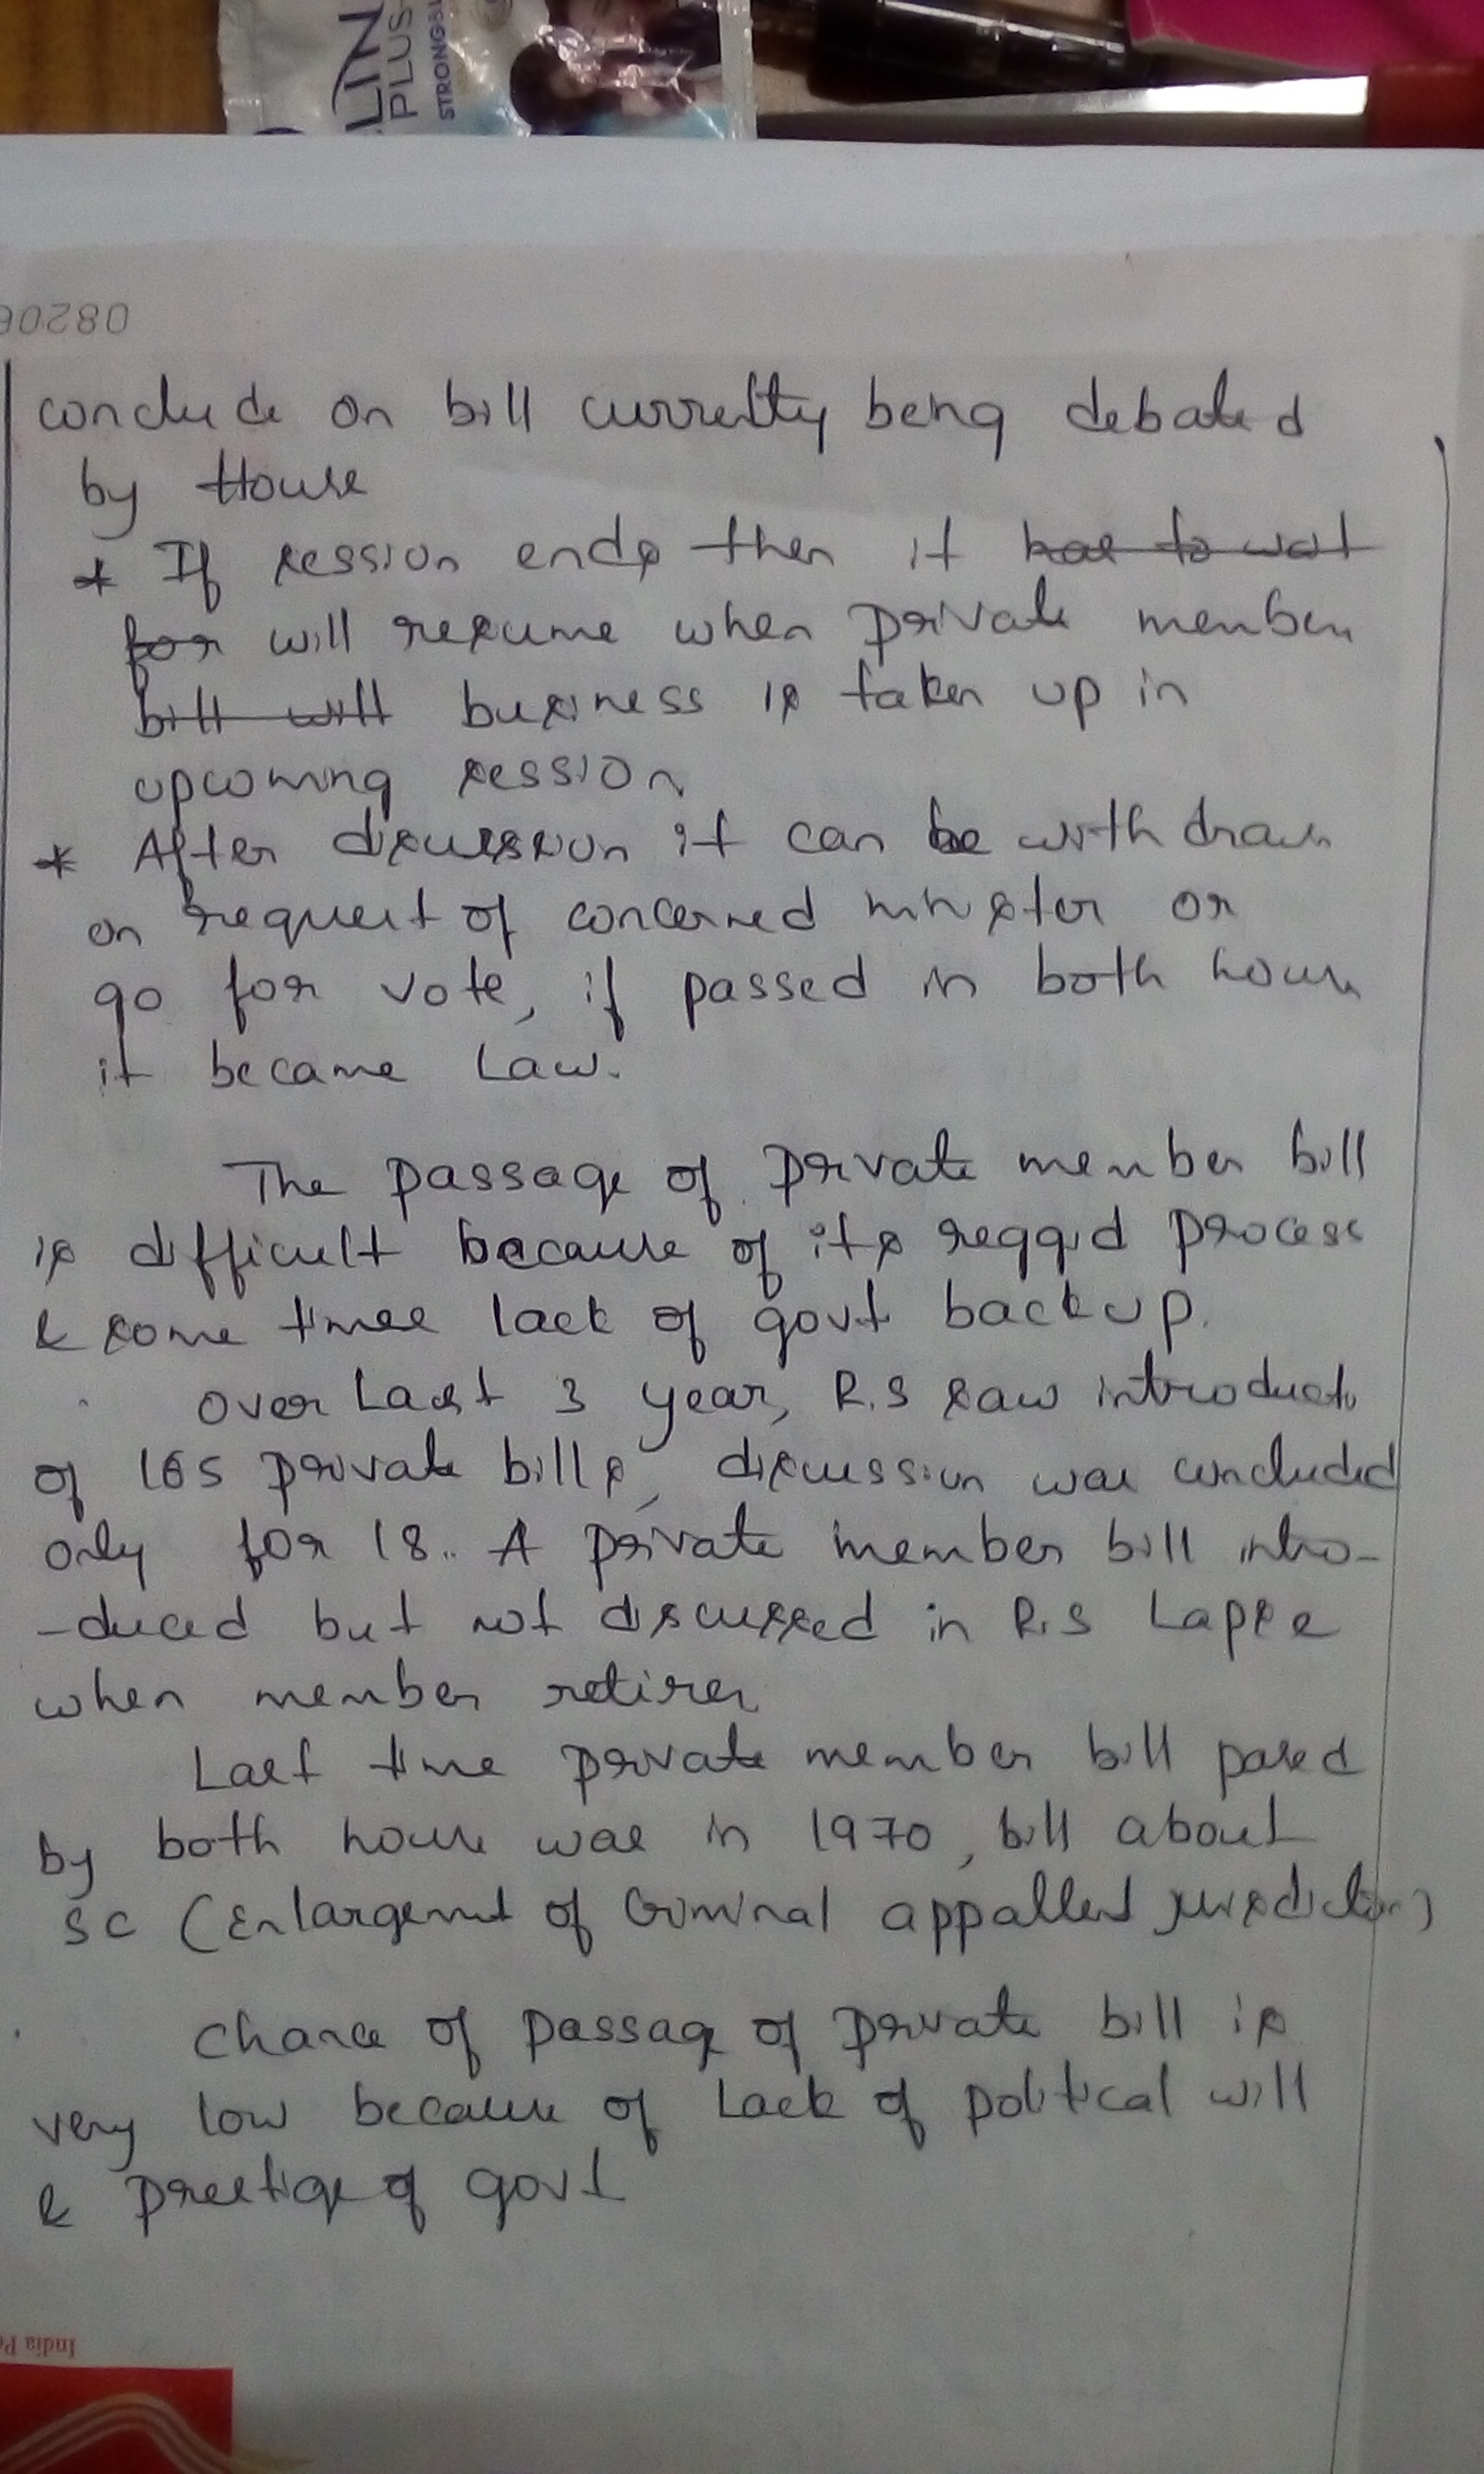 LIN
PLUS
STRONG
08206
conclude on bill currently being debated
by House
* If session ends then it has to wait
for will resume when private member
bill will business is taken up in
upcoming session
* After discussion it can be withdrawn
on request of concerned minister or
go for vote, if passed in both house
it became Law.
The passage of private member bill
is difficult because of its reggid process
& some times lack of govt backup.
Over Last 3 year, R.S saw introducto
of 165 private bills, discussion was concluded
only for 18.. A private member bill intro-
-duced but not discussed in R.S Lapse
when member retires
Last time private member bill pased
by both house was in 1970, bill about
SC (Enlargemnt of Criminal appallent jurisdiction)
Chance of passage of private bill is
very low because of Lack of political will
& prestige of govt
India Po